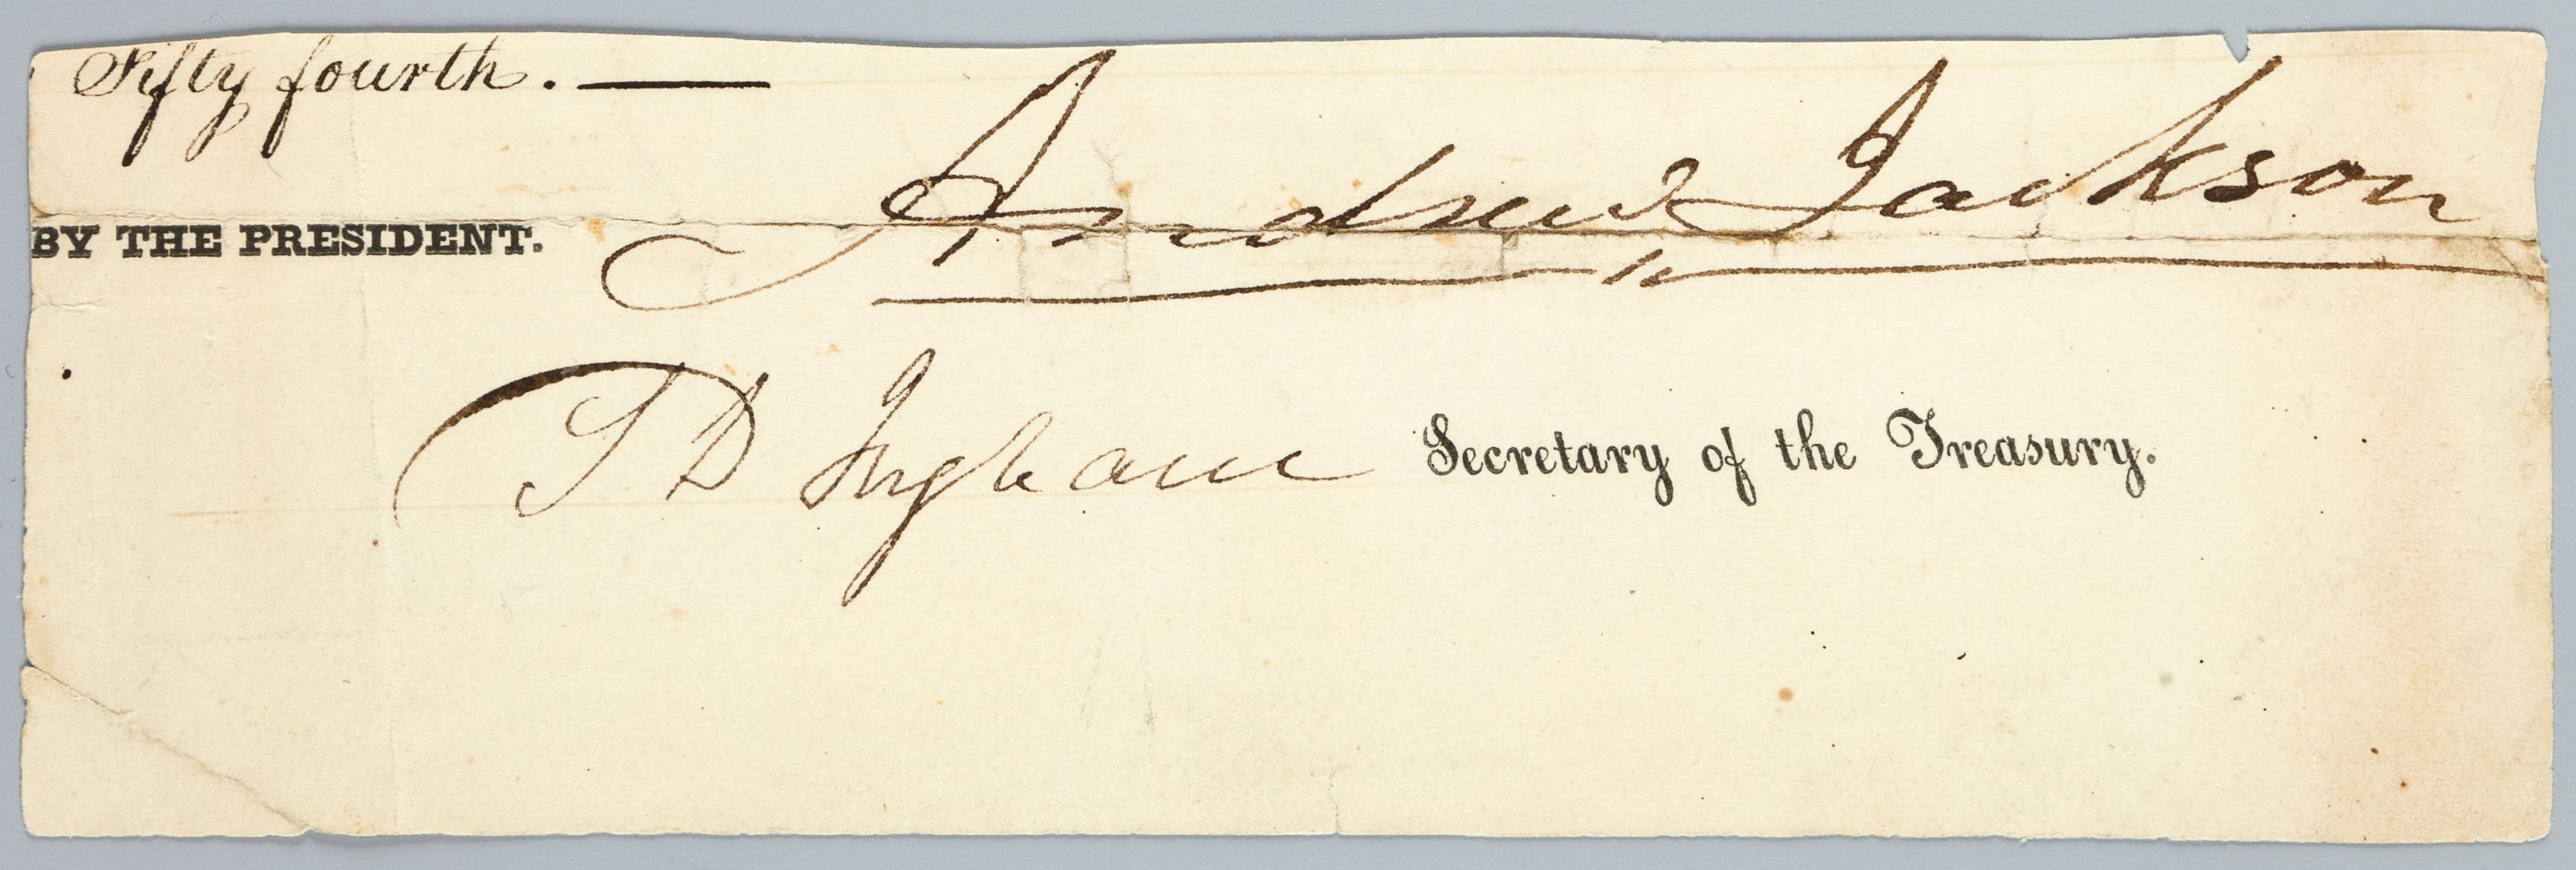 Fifty fourth. —
Andrew Jackson
BY THE PRESIDENT.
S D Ingham Secretary of the Treasury.